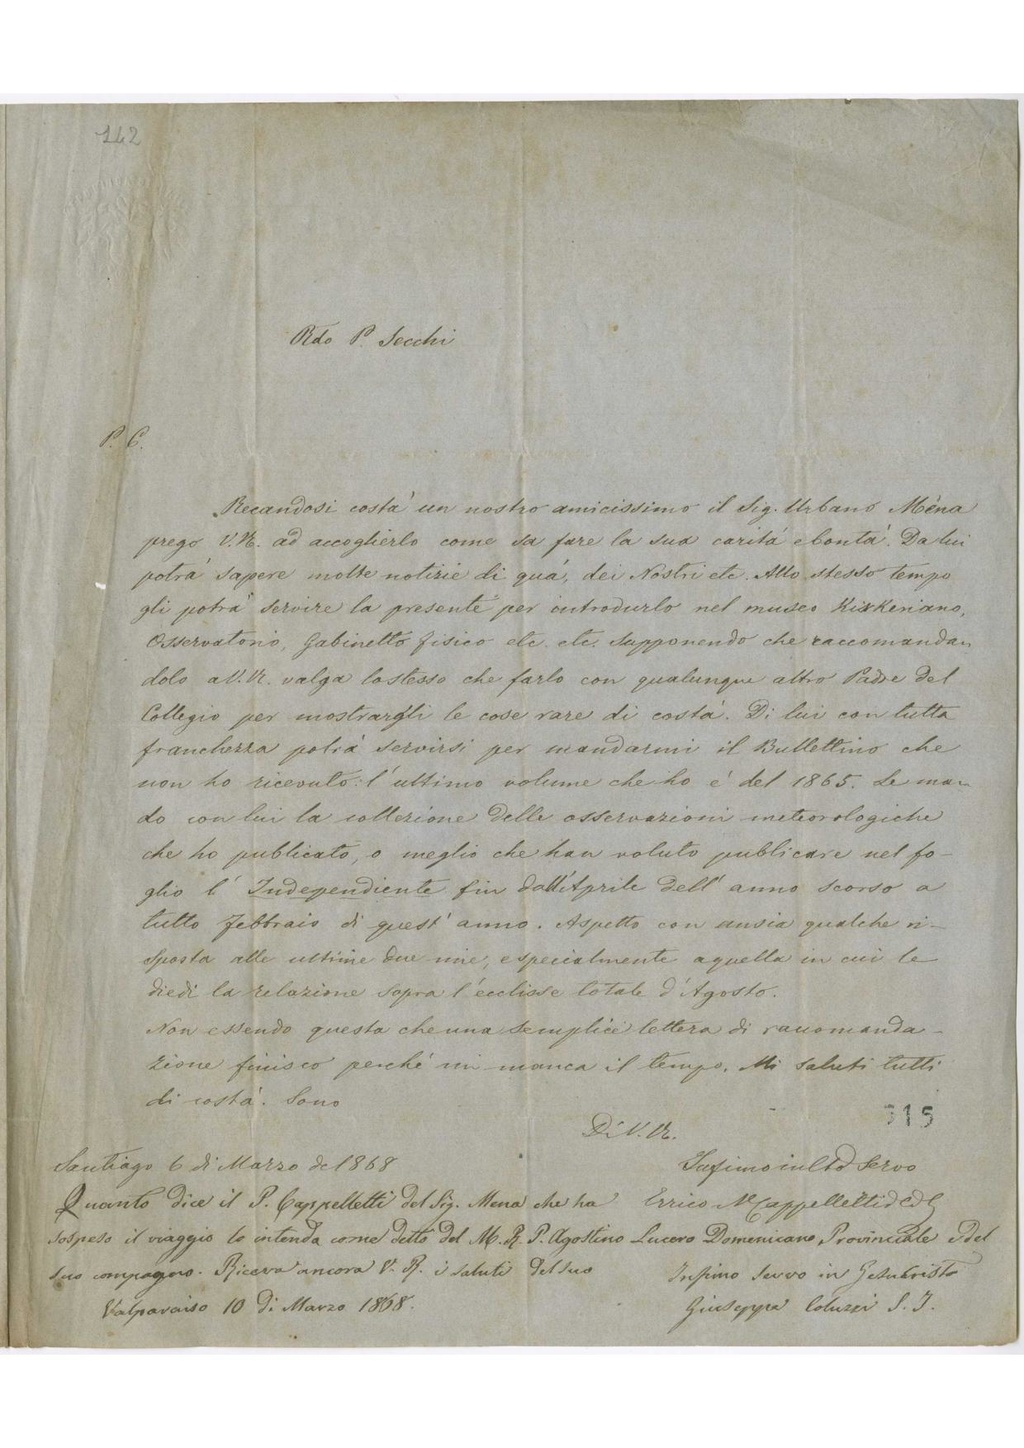 162
Rdo P. Secchi
P. C.
Recandosi costà un nostro amicissimo il Sig. Urbano Mena
prego V. R. ad accoglierlo come sa fare la sua carità e bontà. Da lui
potrà sapere molte notizie di quà, dei Nostri etc. Allo stesso tempo
gli potrà servire la presente per introdurlo nel museo Kirkeriano,
Osservatorio, Gabinetto fisico etc. etc. supponendo che raccomandan
dolo a V. R. valga lo stesso che farlo con qualunque altro Padre del
Collegio per mostrargli le cose rare di costà. Di lui con tutta
franchezza potrà servirsi per mandarmi il Bullettino che
non ho ricevuto: l'ultimo volume che ho è del 1865. Le man
do con lui la collezione delle osservazioni meteorologiche
che ho publicato, o meglio che han voluto publicare nel fo-
glio l'Independiente fin dall'Aprile dell'anno scorso a
tutto Febbraio di quest'anno. Aspetto con ansia qualche ri-
sposta alle ultime due mie, especialmente a quella in cui le
diedi la relazione sopra l'ecclisse totale d'Agosto.
Non essendo questa che una semplice lettera di raccomanda-
zione finisco perchè mi manca il tempo. Mi saluti tutti
di costà. Sono
Di V. R.
315
Santiago 6 di Marzo de 1868
Infimo in servo
Errico Cappelletti
Quanto dice il P. Cappelletti del Sig. Mena che ha
sospeso il viaggio lo intenda come detto del M. R. P. Agostino Lucero Domenicano Provinciale e del
suo compagno. Riceva ancora V. R. i saluti del suo
Infimo servo in Gesù Cristo
Valparaiso 10 di Marzo 1868.
Giuseppe Coluzzi S. J.